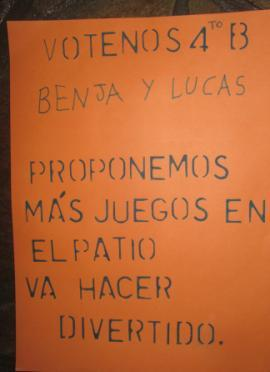 VOTENOS 4TO B
BENJA Y LUCAS
PROPONEMOS
MÁS JUEGOS EN
EL PATIO
VA HACER
DIVERTIDO.